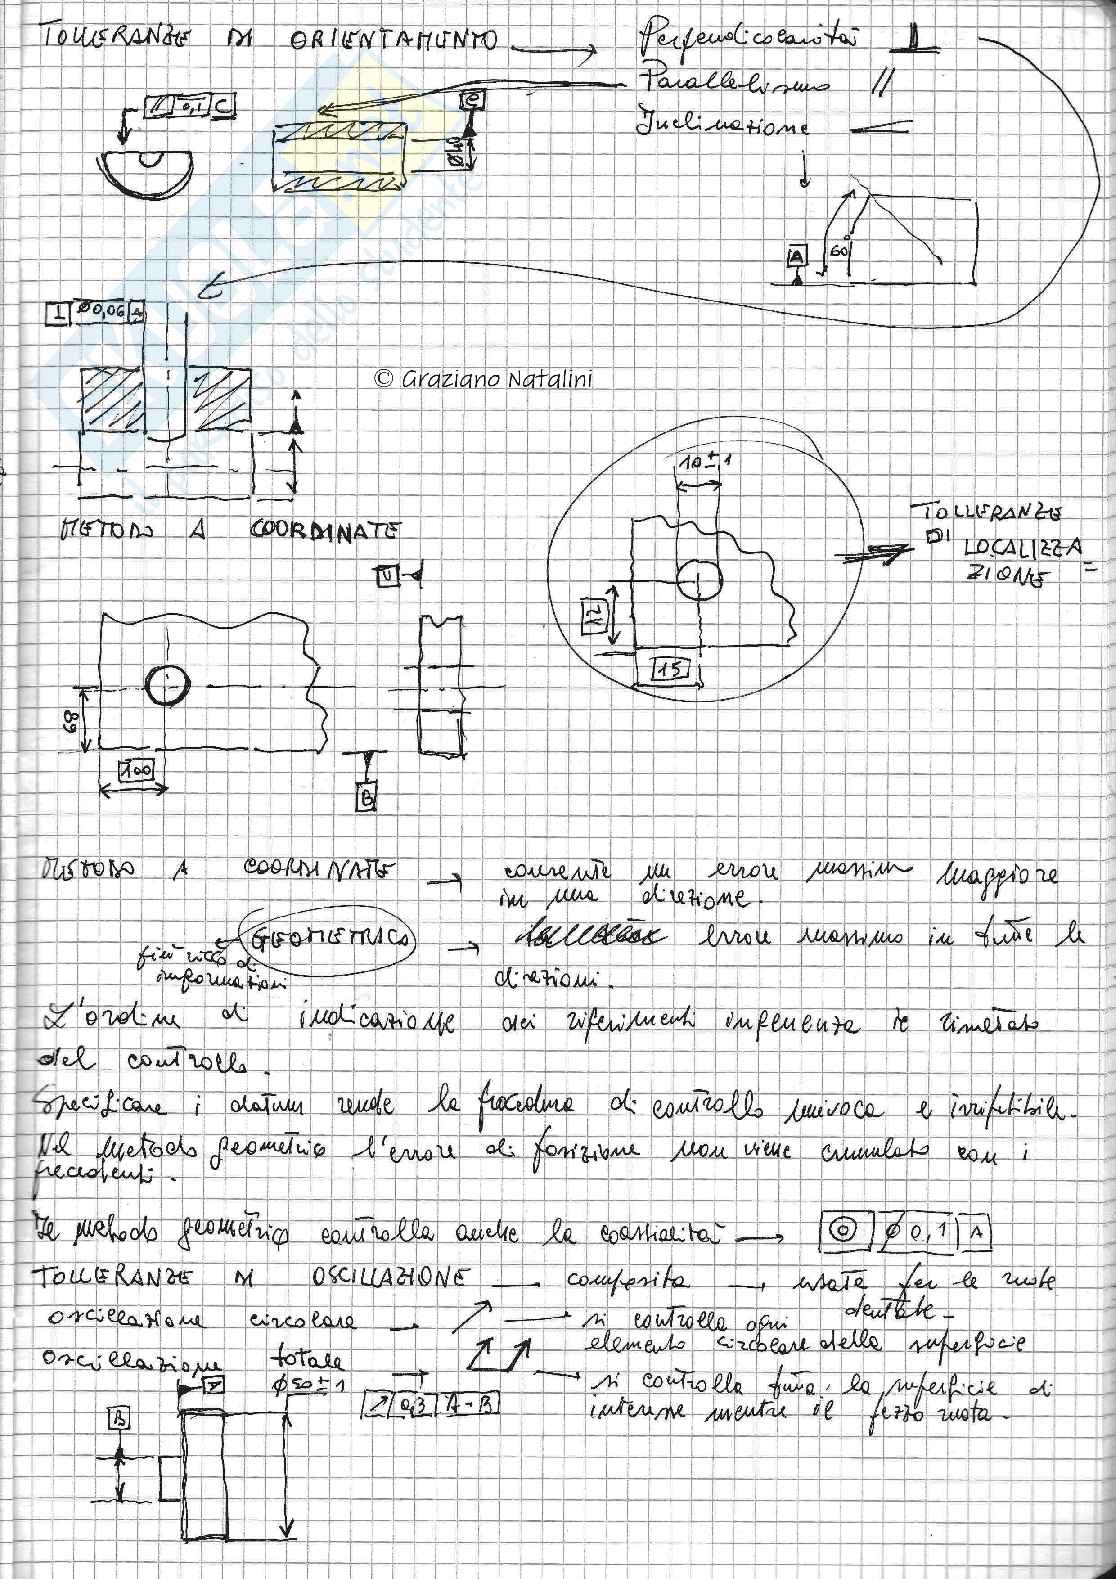 TOLLERANZE DI ORIENTAMENTO → Perpendicolarità ⊥
Parallelismo //
Inclinazione ∠
// 0,1 C
C
Ø40
A
60°
⊥ Ø0,06 A
A
© Graziano Natalini
METODO A COORDINATE
10±1
12
15
TOLLERANZE
DI LOCALIZZA
ZIONE
89
100
B
METODO A COORDINATE → consente un errore massimo maggiore
in una direzione.
GEOMETRICO → errore massimo in tutte le
direzioni.
più ricco di
informazioni
L'ordine di indicazione dei riferimenti influenza il risultato
del controllo.
Specificare i datum rende la procedura di controllo univoca e irripetibile.
Nel metodo geometrico l'errore di posizione non viene cumulato con i
precedenti.
Il metodo geometrico controlla anche la coassialità → ◎ Ø 0,1 A
TOLLERANZE DI OSCILLAZIONE → composita → usata per le ruote
dentate
oscillazione circolare → ↗ → si controlla ogni
elemento circolare della superficie
oscillazione totale → → si controlla tutta la superficie di
interesse mentre il pezzo ruota.
A
Ø50±1
↗ 0,3 A-B
B